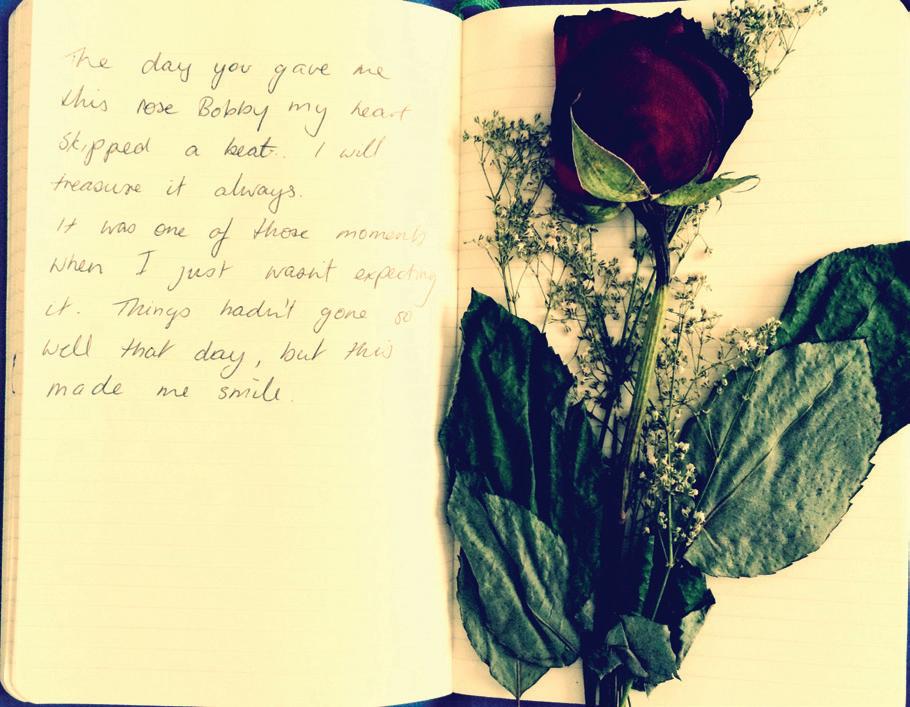 The day you gave me
this rose Bobby my heart
skipped a beat.. I will
treasure it always.
It was one of those moments
when I just wasn't expecting
it. Things hadn't gone so
well that day, but this
made me smile.